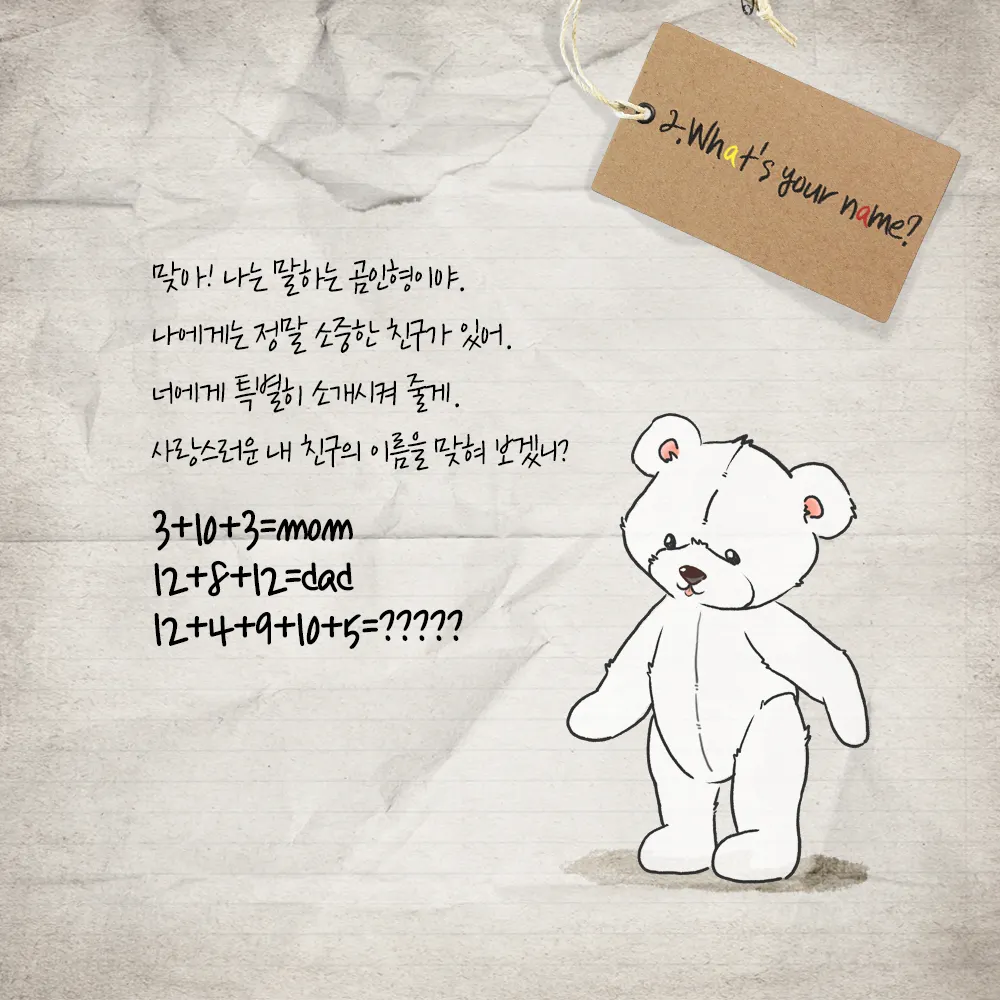 2.What's your name?
맞아! 나는 말하는 곰인형이야.
나에게는 정말 소중한 친구가 있어.
너에게 특별히 소개시켜 줄게.
사랑스러운 내 친구의 이름을 맞혀 보겠니?
3+10+3=mom
12+8+12=dad
12+4+9+10+5=?????